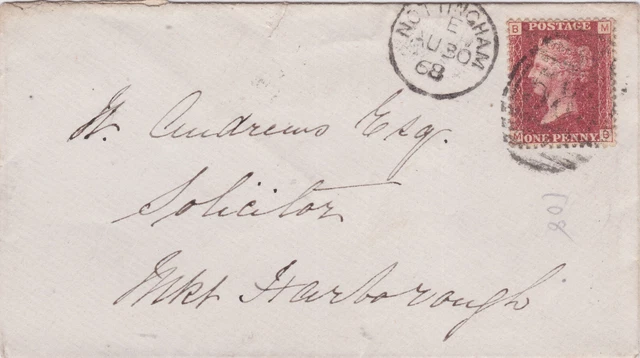 NOTTINGHAM
E
AU 30
68
B M
POSTAGE
ONE PENNY
M B
W. Andrews Esq.
Solicitor
Mkt Harborough
108